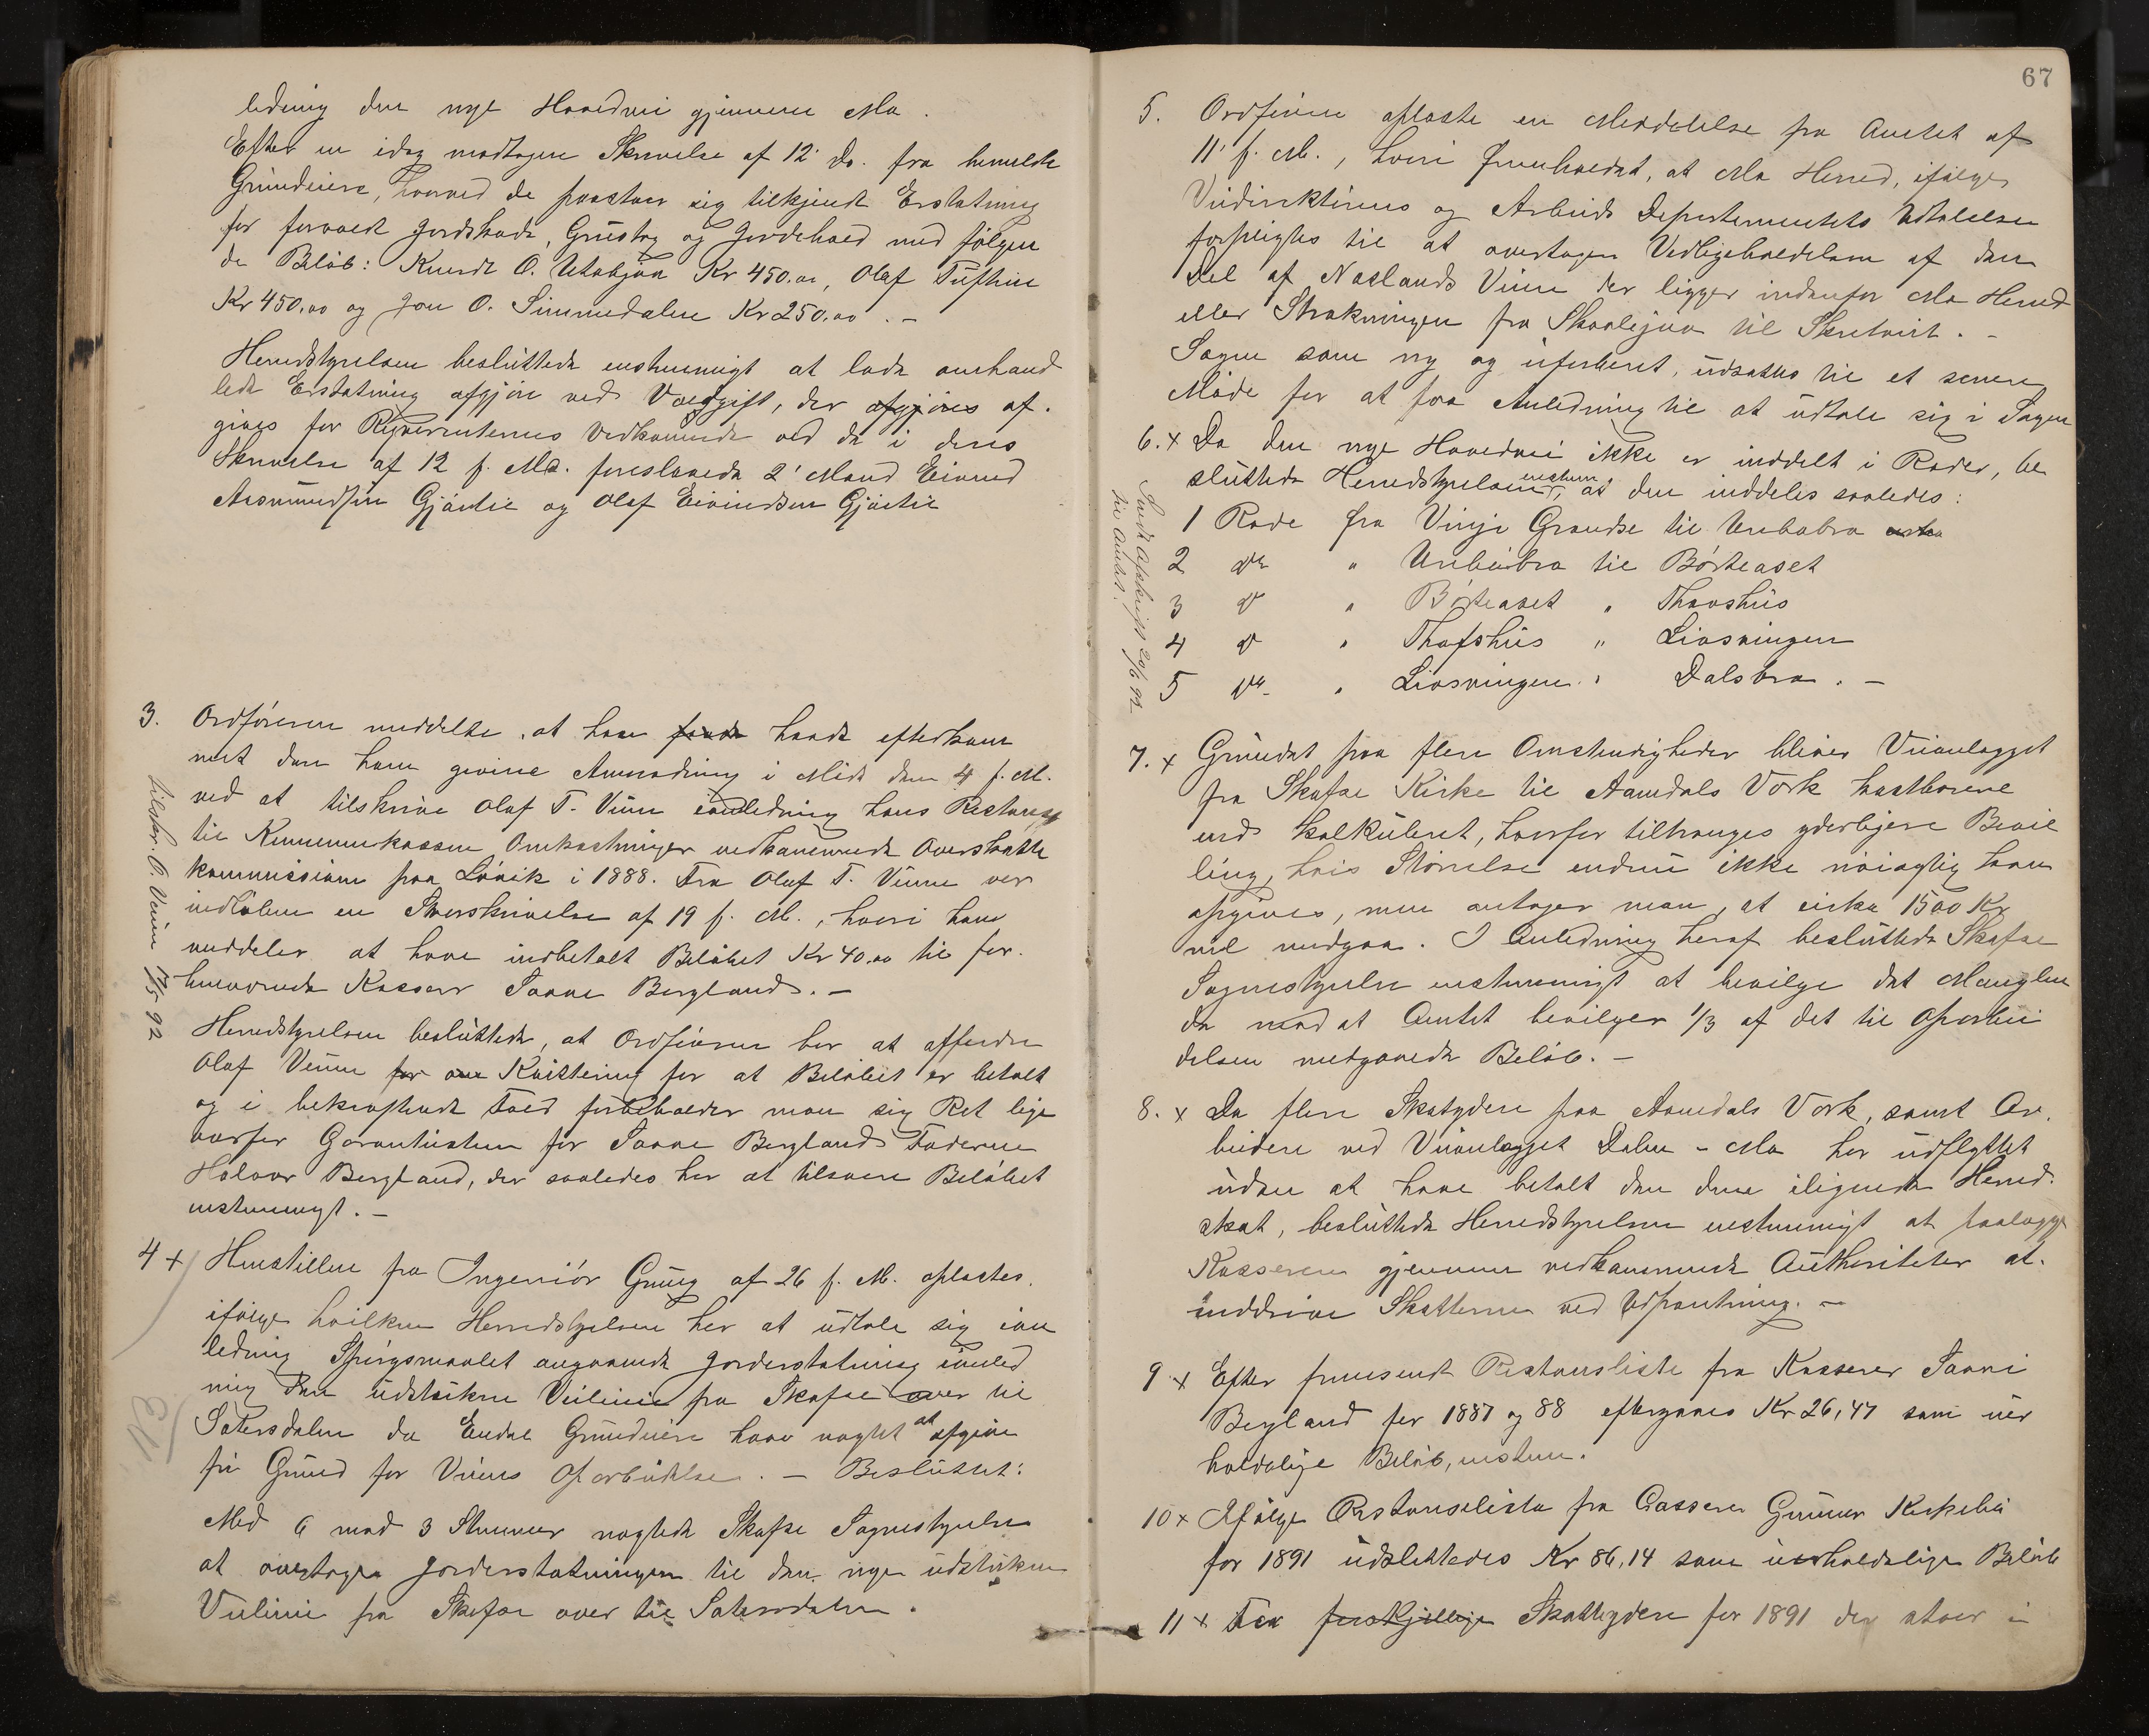 ledning den nye Hovedvei gjennem Mo.
Efter en idag modtagen Skrivelse af 12' Ds. fra bemeldte
Grundeiere, hvorved de paastaar sig tilkjendt Erstatning
for forvoldt Jordskade, Grustag og Jordehold med følgen
de Beløb: Knudt O. Utabjaa Kr 450.00, Olaf Tuftin
Kr 450.00 og Jon O. Simmedalen Kr 250.00. –
Herredstyrelsen besluttede enstemmigt at lade omhand
lede Erstatning afgjøre ved Voldgift, der afgjøres af-
gives for Reqvirenternes Vedkommende ved de i deres
Skrivelse af 12 f. Md. foreslaaede 2' Mænd Eivind
Aasmundsen Gjøitil og Olaf Eivindsen Gjøitil
3. Ordføreren meddelte, at han havde efterkom
met den ham givne Anmodning i Møde den 4 f. M.
ved at tilskrive Olaf T. Vinn ianledning hans Restance
til Kommunekassen, Omkostninger vedkommende Overskatte
kommissionen paa Laaik i 1888. Fra Olaf T. Vinn var
indløben en Svarskrivelse af 19 f. M., hvori han
meddeler at have indbetalt Beløbet Kr 40.00 til for-
henværende Kasserer Taave Bergland. –
tilskr. O. Vinn 17/5 92
Herredstyrelsen besluttede, at Ordføreren har at affordre
Olaf Vinn for Kvittering for at Beløbet er betalt
og i bekræftende Fald forbeholder man sig Ret lige
overfor Garantisten for Taave Bergland Faderen
Halvor Bergland, der saaledes har at tilsvare Beløbet
enstemmigt. –
4 + Henstillen fra Ingeniør Grung af 26 f. M. oplæstes,
ifølge hvilken Herredstyrelsen har at udtale sig ian
ledning Spørgsmaalet angaaende Jorderstatning ianled
ning den udstukne Veilinie fra Skafse over til
Sætersdalen da Endel Grundeiere have nægtet at afgive
fri Grund for Veiens Oparbeidelse. – Besluttet:
Med 6 mod 3 Stemmer nægtede Skafse Sognestyrelse
at overtage Jorderstatningen til den nye udstukne
Veilinie fra Skafse over til Sætersdalen.
67
5. Ordføreren oplæste en Meddelelse fra Amtet af
11' f. M., hvori fremholdet, at Mo Herred, ifølge
Veidirektørens og Arbeids Departementets Udtalelser
forpligtes til at overtage Vedligeholdelsen af den
Del af Næslands Veien der ligger indenfor Mo Herred
eller Strækningen fra Skaalijuv til Skretveit. –
Sagen som ny og uforberet, udsattes til et senere
Møde for at faa Anledning til at udtale sig i Sagen
6. x Da den nye Hovedvei ikke er inddelt i Roder, be
sluttede Herredstyrelsen enstem., at den inddeles saaledes:
1 Rode fra Vinje Grændse til Urebøbro
2 do " Urebøbro til Børteaaset
3 do " Børteaaset " Thovshus
4 do " Thofshus " Liosvingen
5 do " Liosvingen " Dalsbro. –
Sendt Afskrift 20/6 92
til Amtet.
7. x Grundet paa flere Omstendigheder bliver Veianlægget
fra Skafse Kirke til Aamdals Værk kostbarere
end kalkuleret, hvorfor tiltrænges yderligere Bevil
ling, hvis Størrelse endnu ikke nøiagtig kan
opgives, men antager man, at cirka 1500 Kr
vil medgaa. I Anledning heraf besluttede Skafse
Sognestyrelse enstemmigt at bevilge det Manglen
de mod at Amtet bevilger 1/3 af det til Oparbei
delsen medgaaede Beløb. –
8. x Da flere Skatydere paa Aamdals Værk, samt Ar-
beidere ved Veianlægget Dalen – Mo har udflyttet
uden at have betalt den dem ilignede Herred-
skat, besluttede Herredstyrelsen enstemmigt at paalægge
Kassereren gjennem vedkommende Authoriteter at
inddrive Skatterne ved Udpantning. –
9 x Efter fremsendt Restanseliste fra Kasserer Taave
Bergland for 1887 og 88 eftergaves Kr 26,47 som uer
holdelige Beløb, enstem.
10 x Ifølge Restanseliste fra Casserer Gunnar Kirkebø
for 1891 udslettedes Kr 86,14 som uerholdelige Beløb
11 x Fra forskjellige Skatteydere for 1891 der staar i